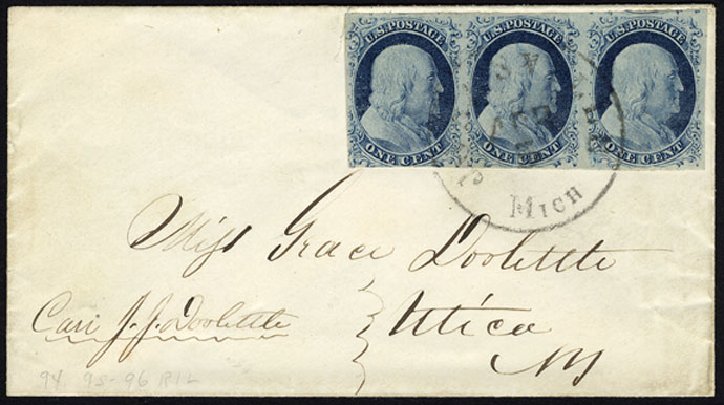 U.S. POSTAGE U.S. POSTAGE U.S. POSTAGE
ONE CENT ONE CENT ONE CENT
APR
MICH
Miss Grace Doolittle
Care J. J. Doolittle
Utica
NY
94 95-96 R1L